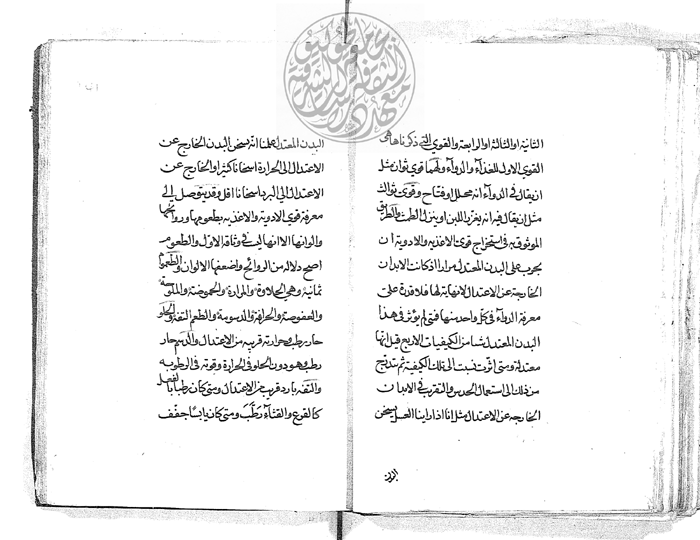 الثانية او الثالثة او الرابعة والقوى التي ذكرناها هى
القوى الاول للغذآء والدوآء ولهما قوى ثوان مثل
ان يقال فى الدوآء انه محلل او فتاح وقوى ثوالث
مثل ان يقال فيه انه يغزر اللبن او ينزل الطمث والطريق
الموثوق به فى استخراج قوى الاغذيه والادوية ان
يجرب على البدن المعتدل مرارا اذ كانت الابدان
الخارجة عن الاعتدال لانهاية لها فلا قدرة على
معرفة الدوآء فى كل واحد منها فمتى لم يؤثر فى هذا
البدن المعتدل شيا من الكيفيات الاربع قيل انها
معتدلة ومتى اثرت نسبت الى تلك الكيفية ثم تدرج
من ذلك الى استعمال الحدس والتقريب فى الابدان
الخارجه عن الاعتدال مثل انا اذا راينا العسل يسخن
البدن
البدن المعتدل علمنا انه يسخن البدن الخارج عن
الاعتدال الى الحرارة اسخانا كثيرا والخارج عن
الاعتدال الى البرد اسخانا اقل وقد يتوصل الى
معرفة قوى الادوية والاغذيه بطعومها وروائحها
والوانها الا انها ليس فى وثاقة الاول والطعوم
اصح دلالة من الروائح واضعفها الالوان والطعوم
ثمانية وهى الحلاوة والمرارة والحموضة والملوحة
والعفوصة والحرافة والدسومة والطعم التفه والحلو
حار رطب حرارته قريبه من الاعتدال والدسم حار
رطب وهو دون الحلو فى الحرارة وقوته فى الرطوبه
والتفه بارد قريب من الاعتدال ومتى كان رطبا بالفعل
كالقرع والقثآء رطب ومتى كان يابسا جفف